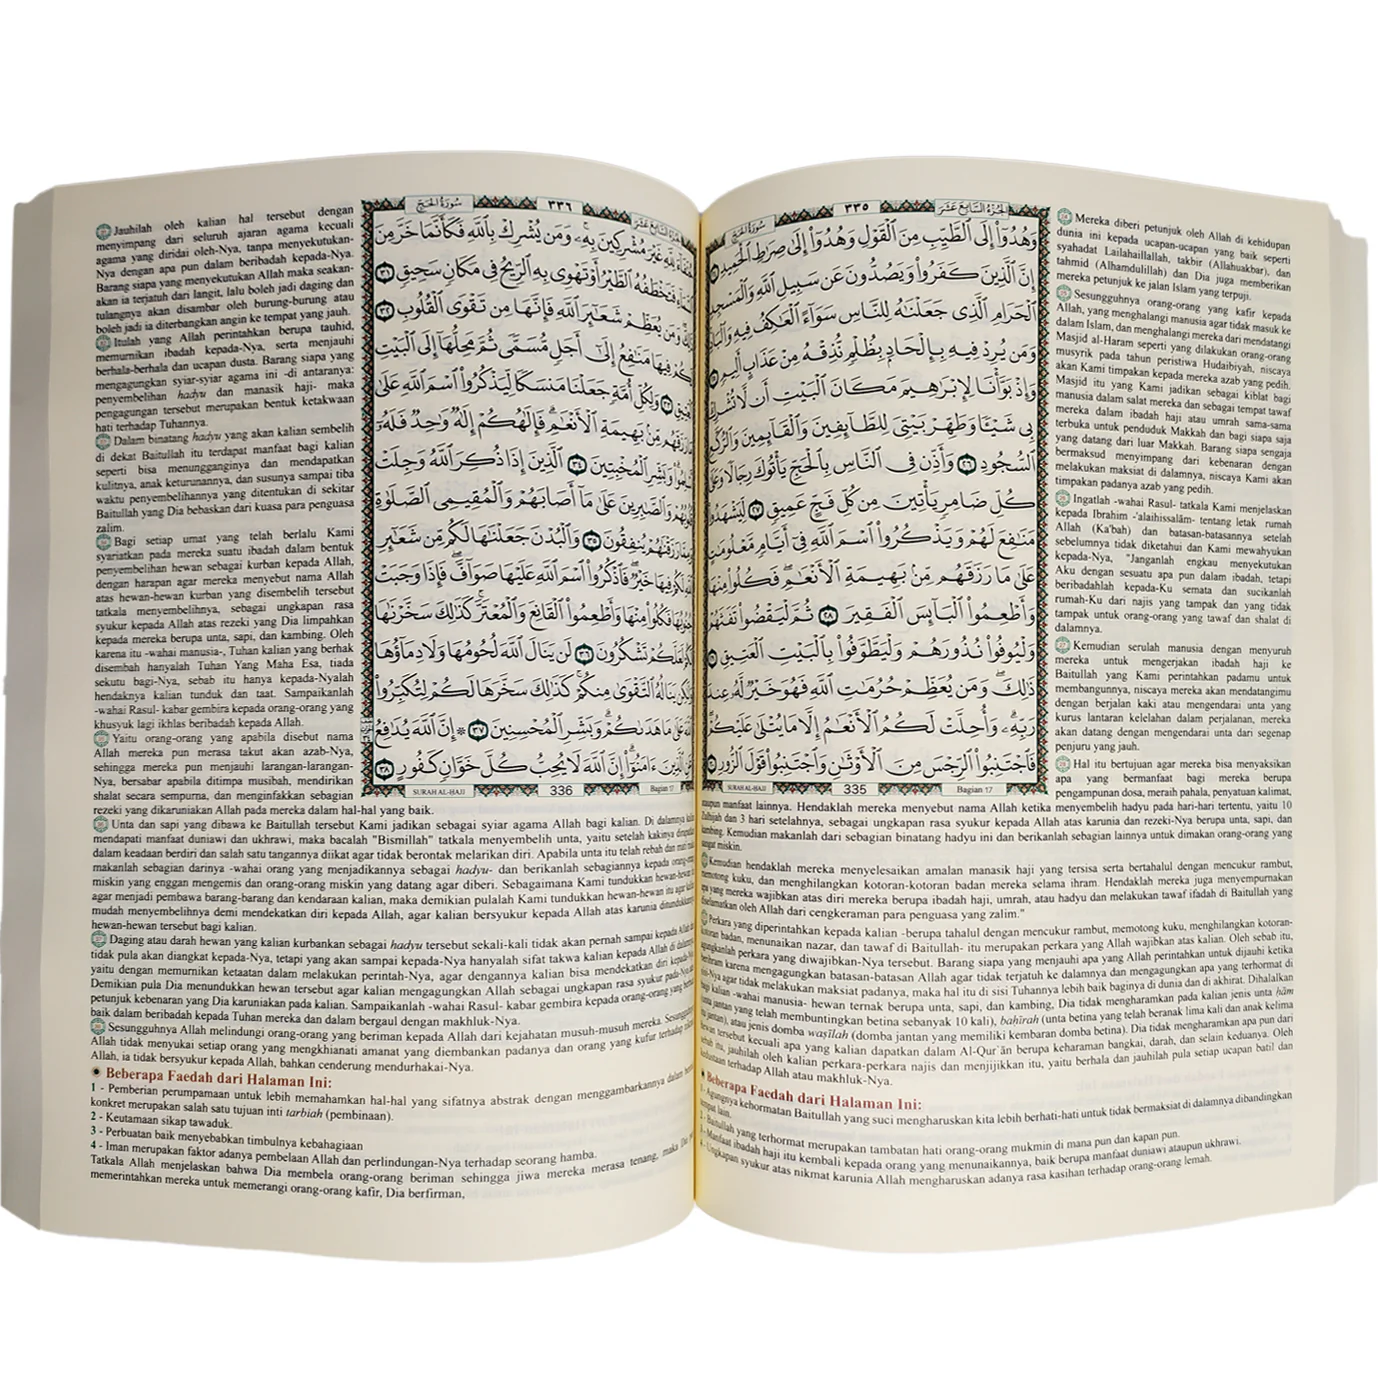 الجزء السابع عشر ٣٣٥ سورة الحج
وَهُدُوٓا۟ إِلَى ٱلطَّيِّبِ مِنَ ٱلْقَوْلِ وَهُدُوٓا۟ إِلَىٰ صِرَٰطِ ٱلْحَمِيدِ
إِنَّ ٱلَّذِينَ كَفَرُوا۟ وَيَصُدُّونَ عَن سَبِيلِ ٱللَّهِ وَٱلْمَسْجِدِ
ٱلْحَرَامِ ٱلَّذِى جَعَلْنَٰهُ لِلنَّاسِ سَوَآءً ٱلْعَٰكِفُ فِيهِ وَٱلْبَادِ
وَمَن يُرِدْ فِيهِ بِإِلْحَادٍۭ بِظُلْمٍ نُّذِقْهُ مِنْ عَذَابٍ أَلِيمٍ
وَإِذْ بَوَّأْنَا لِإِبْرَٰهِيمَ مَكَانَ ٱلْبَيْتِ أَن لَّا تُشْرِكْ
بِى شَيْـًٔا وَطَهِّرْ بَيْتِىَ لِلطَّآئِفِينَ وَٱلْقَآئِمِينَ وَٱلرُّكَّعِ
ٱلسُّجُودِ ٢٦ وَأَذِّن فِى ٱلنَّاسِ بِٱلْحَجِّ يَأْتُوكَ رِجَالًا وَعَلَىٰ
كُلِّ ضَامِرٍ يَأْتِينَ مِن كُلِّ فَجٍّ عَمِيقٍ ٢٧ لِّيَشْهَدُوا۟
مَنَٰفِعَ لَهُمْ وَيَذْكُرُوا۟ ٱسْمَ ٱللَّهِ فِىٓ أَيَّامٍ مَّعْلُومَٰتٍ
عَلَىٰ مَا رَزَقَهُم مِّنۢ بَهِيمَةِ ٱلْأَنْعَٰمِ ۖ فَكُلُوا۟ مِنْهَا
وَأَطْعِمُوا۟ ٱلْبَآئِسَ ٱلْفَقِيرَ ٢٨ ثُمَّ لْيَقْضُوا۟ تَفَثَهُمْ
وَلْيُوفُوا۟ نُذُورَهُمْ وَلْيَطَّوَّفُوا۟ بِٱلْبَيْتِ ٱلْعَتِيقِ
ذَٰلِكَ ۖ وَمَن يُعَظِّمْ حُرُمَٰتِ ٱللَّهِ فَهُوَ خَيْرٌ لَّهُۥ عِندَ
رَبِّهِۦ ۗ وَأُحِلَّتْ لَكُمُ ٱلْأَنْعَٰمُ إِلَّا مَا يُتْلَىٰ عَلَيْكُمْ
فَٱجْتَنِبُوا۟ ٱلرِّجْسَ مِنَ ٱلْأَوْثَٰنِ وَٱجْتَنِبُوا۟ قَوْلَ ٱلزُّورِ
SURAH AL-HAJJ 335 Bagian 17
24 Mereka diberi petunjuk oleh Allah di kehidupan
dunia ini kepada ucapan-ucapan yang baik seperti
syahadat Lailahaillallah, takbir (Allahuakbar), dan
tahmid (Alhamdulillah) dan Dia juga memberikan
mereka petunjuk ke jalan Islam yang terpuji.
25 Sesungguhnya orang-orang yang kafir kepada
Allah, yang menghalangi manusia agar tidak masuk ke
dalam Islam, dan menghalangi mereka dari mendatangi
Masjid al-Haram seperti yang dilakukan orang-orang
musyrik pada tahun peristiwa Hudaibiyah, niscaya
akan Kami timpakan kepada mereka azab yang pedih.
Masjid itu yang Kami jadikan sebagai kiblat bagi
manusia dalam salat mereka dan sebagai tempat tawaf
mereka dalam ibadah haji atau umrah sama-sama
terbuka untuk penduduk Makkah dan bagi siapa saja
yang datang dari luar Makkah. Barang siapa sengaja
bermaksud menyimpang dari kebenaran dengan
melakukan maksiat di dalamnya, niscaya Kami akan
timpakan padanya azab yang pedih.
26 Ingatlah -wahai Rasul- tatkala Kami menjelaskan
kepada Ibrahim -'alaihissalām- tentang letak rumah
Allah (Ka'bah) dan batasan-batasannya setelah
sebelumnya tidak diketahui dan Kami mewahyukan
kepada-Nya, "Janganlah engkau menyekutukan
Aku dengan sesuatu apa pun dalam ibadah, tetapi
beribadahlah kepada-Ku semata dan sucikanlah
rumah-Ku dari najis yang tampak dan yang tidak
tampak untuk orang-orang yang tawaf dan shalat di
dalamnya.
27 Kemudian serulah manusia dengan menyuruh
mereka untuk mengerjakan ibadah haji ke
Baitullah yang Kami perintahkan padamu untuk
membangunnya, niscaya mereka akan mendatangimu
dengan berjalan kaki atau mengendarai unta yang
kurus lantaran kelelahan dalam perjalanan, mereka
akan datang dengan mengendarai unta dari segenap
penjuru yang jauh.
28 Hal itu bertujuan agar mereka bisa menyaksikan
apa yang bermanfaat bagi mereka berupa
pengampunan dosa, meraih pahala, penyatuan kalimat,
ataupun manfaat lainnya. Hendaklah mereka menyebut nama Allah ketika menyembelih hadyu pada hari-hari tertentu, yaitu 10
Zulhijah dan 3 hari setelahnya, sebagai ungkapan rasa syukur kepada Allah atas karunia dan rezeki-Nya berupa unta, sapi, dan
kambing. Kemudian makanlah dari sebagian binatang hadyu ini dan berikanlah sebagian lainnya untuk dimakan orang-orang yang
sangat miskin.
Kemudian hendaklah mereka menyelesaikan amalan manasik haji yang tersisa serta bertahalul dengan mencukur rambut,
memotong kuku, dan menghilangkan kotoran-kotoran badan mereka selama ihram. Hendaklah mereka juga menyempurnakan
apa yang mereka wajibkan atas diri mereka berupa ibadah haji, umrah, atau hadyu dan melakukan tawaf ifadah di Baitullah yang
diselamatkan oleh Allah dari cengkeraman para penguasa yang zalim."
Perkara yang diperintahkan kepada kalian -berupa tahalul dengan mencukur rambut, memotong kuku, menghilangkan kotoran-
kotoran badan, menunaikan nazar, dan tawaf di Baitullah- itu merupakan perkara yang Allah wajibkan atas kalian. Oleh sebab itu,
agungkanlah perkara yang diwajibkan-Nya tersebut. Barang siapa yang menjauhi apa yang Allah perintahkan untuk dijauhi ketika
berihram karena mengagungkan batasan-batasan Allah agar tidak terjatuh ke dalamnya dan mengagungkan apa yang terhormat di
sisi-Nya agar tidak melakukan maksiat padanya, maka hal itu di sisi Tuhannya lebih baik baginya di dunia dan di akhirat. Dihalalkan
bagi kalian -wahai manusia- hewan ternak berupa unta, sapi, dan kambing, Dia tidak mengharamkan pada kalian jenis unta hām
(unta jantan yang telah membuntingkan betina sebanyak 10 kali), bahīrah (unta betina yang telah beranak lima kali dan anak kelima
jantan), atau jenis domba waṣīlah (domba jantan yang memiliki kembaran domba betina). Dia tidak mengharamkan apa pun dari
hewan tersebut kecuali apa yang kalian dapatkan dalam Al-Qur`ān berupa keharaman bangkai, darah, dan selain keduanya. Oleh
sebab itu, jauhilah oleh kalian perkara-perkara najis dan menjijikkan itu, yaitu berhala dan jauhilah pula setiap ucapan batil dan
kedustaan terhadap Allah atau makhluk-Nya.
Beberapa Faedah dari Halaman Ini:
- Agungnya kehormatan Baitullah yang suci mengharuskan kita lebih berhati-hati untuk tidak bermaksiat di dalamnya dibandingkan
tempat lain.
- Baitullah yang terhormat merupakan tambatan hati orang-orang mukmin di mana pun dan kapan pun.
- Manfaat ibadah haji itu kembali kepada orang yang menunaikannya, baik berupa manfaat duniawi ataupun ukhrawi.
- Ungkapan syukur atas nikmat karunia Allah mengharuskan adanya rasa kasihan terhadap orang-orang lemah.
الجزء السابع عشر ٣٣٦ سورة الحج
لِلَّهِ غَيْرَ مُشْرِكِينَ بِهِۦ ۚ وَمَن يُشْرِكْ بِٱللَّهِ فَكَأَنَّمَا خَرَّ مِنَ
فَتَخْطَفُهُ ٱلطَّيْرُ أَوْ تَهْوِى بِهِ ٱلرِّيحُ فِى مَكَانٍ سَحِيقٍ ٣١
وَمَن يُعَظِّمْ شَعَٰٓئِرَ ٱللَّهِ فَإِنَّهَا مِن تَقْوَى ٱلْقُلُوبِ ٣٢
فِيهَا مَنَٰفِعُ إِلَىٰٓ أَجَلٍ مُّسَمًّى ثُمَّ مَحِلُّهَآ إِلَى ٱلْبَيْتِ
وَلِكُلِّ أُمَّةٍ جَعَلْنَا مَنسَكًا لِّيَذْكُرُوا۟ ٱسْمَ ٱللَّهِ عَلَىٰ
مِّنۢ بَهِيمَةِ ٱلْأَنْعَٰمِ ۗ فَإِلَٰهُكُمْ إِلَٰهٌ وَٰحِدٌ فَلَهُۥٓ
وَبَشِّرِ ٱلْمُخْبِتِينَ ٣٤ ٱلَّذِينَ إِذَا ذُكِرَ ٱللَّهُ وَجِلَتْ
وَٱلصَّٰبِرِينَ عَلَىٰ مَآ أَصَابَهُمْ وَٱلْمُقِيمِى ٱلصَّلَوٰةِ
رَزَقْنَٰهُمْ يُنفِقُونَ ٣٥ وَٱلْبُدْنَ جَعَلْنَٰهَا لَكُم مِّن شَعَٰٓئِرِ
لَكُمْ فِيهَا خَيْرٌ ۖ فَٱذْكُرُوا۟ ٱسْمَ ٱللَّهِ عَلَيْهَا صَوَآفَّ ۖ فَإِذَا وَجَبَتْ
فَكُلُوا۟ مِنْهَا وَأَطْعِمُوا۟ ٱلْقَانِعَ وَٱلْمُعْتَرَّ ۚ كَذَٰلِكَ سَخَّرْنَٰهَا
لَعَلَّكُمْ تَشْكُرُونَ ٣٦ لَن يَنَالَ ٱللَّهَ لُحُومُهَا وَلَا دِمَآؤُهَا
يَنَالُهُ ٱلتَّقْوَىٰ مِنكُمْ ۚ كَذَٰلِكَ سَخَّرَهَا لَكُمْ لِتُكَبِّرُوا۟
عَلَىٰ مَا هَدَىٰكُمْ ۗ وَبَشِّرِ ٱلْمُحْسِنِينَ ٣٧ ۞ إِنَّ ٱللَّهَ يُدَٰفِعُ
ٱلَّذِينَ ءَامَنُوٓا۟ ۗ إِنَّ ٱللَّهَ لَا يُحِبُّ كُلَّ خَوَّانٍ كَفُورٍ ٣٨
SURAH AL-HAJJ 336 Bagian 17
31 Jauhilah oleh kalian hal tersebut dengan
menyimpang dari seluruh ajaran agama kecuali
agama yang diridai oleh-Nya, tanpa menyekutukan-
Nya dengan apa pun dalam beribadah kepada-Nya.
Barang siapa yang menyekutukan Allah maka seakan-
akan ia terjatuh dari langit, lalu boleh jadi daging dan
tulangnya akan disambar oleh burung-burung atau
boleh jadi ia diterbangkan angin ke tempat yang jauh.
32 Itulah yang Allah perintahkan berupa tauhid,
memurnikan ibadah kepada-Nya, serta menjauhi
berhala-berhala dan ucapan dusta. Barang siapa yang
mengagungkan syiar-syiar agama ini -di antaranya:
penyembelihan hadyu dan manasik haji- maka
pengagungan tersebut merupakan bentuk ketakwaan
hati terhadap Tuhannya.
33 Dalam binatang hadyu yang akan kalian sembelih
di dekat Baitullah itu terdapat manfaat bagi kalian
seperti bisa menungganginya dan mendapatkan
kulitnya, anak keturunannya, dan susunya sampai tiba
waktu penyembelihannya yang ditentukan di sekitar
Baitullah yang Dia bebaskan dari kuasa para penguasa
zalim.
34 Bagi setiap umat yang telah berlalu Kami
syariatkan pada mereka suatu ibadah dalam bentuk
penyembelihan hewan sebagai kurban kepada Allah,
dengan harapan agar mereka menyebut nama Allah
atas hewan-hewan kurban yang disembelih tersebut
tatkala menyembelihnya, sebagai ungkapan rasa
syukur kepada Allah atas rezeki yang Dia limpahkan
kepada mereka berupa unta, sapi, dan kambing. Oleh
karena itu -wahai manusia-, Tuhan kalian yang berhak
disembah hanyalah Tuhan Yang Maha Esa, tiada
sekutu bagi-Nya, sebab itu hanya kepada-Nyalah
hendaknya kalian tunduk dan taat. Sampaikanlah
-wahai Rasul- kabar gembira kepada orang-orang yang
khusyuk lagi ikhlas beribadah kepada Allah.
35 Yaitu orang-orang yang apabila disebut nama
Allah mereka pun merasa takut akan azab-Nya,
sehingga mereka pun menjauhi larangan-larangan-
Nya, bersabar apabila ditimpa musibah, mendirikan
shalat secara sempurna, dan menginfakkan sebagian
rezeki yang dikaruniakan Allah pada mereka dalam hal-hal yang baik.
36 Unta dan sapi yang dibawa ke Baitullah tersebut Kami jadikan sebagai syiar agama Allah bagi kalian. Di dalamnya kalian
mendapati manfaat duniawi dan ukhrawi, maka bacalah "Bismillah" tatkala menyembelih unta, yaitu setelah kakinya
dalam keadaan berdiri dan salah satu tangannya diikat agar tidak berontak melarikan diri. Apabila unta itu telah rebah dan mati
makanlah sebagian darinya -wahai orang yang menjadikannya sebagai hadyu- dan berikanlah sebagiannya kepada
miskin yang enggan mengemis dan orang-orang miskin yang datang agar diberi. Sebagaimana Kami tundukkan hewan-hewan
agar menjadi pembawa barang-barang dan kendaraan kalian, maka demikian pulalah Kami tundukkan hewan-hewan itu agar kalian
mudah menyembelihnya demi mendekatkan diri kepada Allah, agar kalian bersyukur kepada Allah atas karunia
hewan-hewan tersebut bagi kalian.
37 Daging atau darah hewan yang kalian kurbankan sebagai hadyu tersebut sekali-kali tidak akan pernah sampai kepada Allah
tidak pula akan diangkat kepada-Nya, tetapi yang akan sampai kepada-Nya hanyalah sifat takwa kalian kepada Allah di
yaitu dengan memurnikan ketaatan dalam melakukan perintah-Nya, agar dengannya kalian bisa mendekatkan diri kepada-Nya.
Demikian pula Dia menundukkan hewan tersebut agar kalian mengagungkan Allah sebagai ungkapan rasa syukur
petunjuk kebenaran yang Dia karuniakan pada kalian. Sampaikanlah -wahai Rasul- kabar gembira kepada orang-orang yang
baik dalam beribadah kepada Tuhan mereka dan dalam bergaul dengan makhluk-Nya.
38 Sesungguhnya Allah melindungi orang-orang yang beriman kepada Allah dari kejahatan musuh-musuh mereka. Sesungguhnya
Allah tidak menyukai setiap orang yang mengkhianati amanat yang diembankan padanya dan orang yang kufur terhadap
Allah, ia tidak bersyukur kepada Allah, bahkan cenderung mendurhakai-Nya.
Beberapa Faedah dari Halaman Ini:
1 - Pemberian perumpamaan untuk lebih memahamkan hal-hal yang sifatnya abstrak dengan menggambarkannya dalam
konkret merupakan salah satu tujuan inti tarbiah (pembinaan).
2 - Keutamaan sikap tawaduk.
3 - Perbuatan baik menyebabkan timbulnya kebahagiaan
4 - Iman merupakan faktor adanya pembelaan Allah dan perlindungan-Nya terhadap seorang hamba.
Tatkala Allah menjelaskan bahwa Dia membela orang-orang beriman sehingga jiwa mereka merasa tenang, maka Dia
memerintahkan mereka untuk memerangi orang-orang kafir, Dia berfirman,